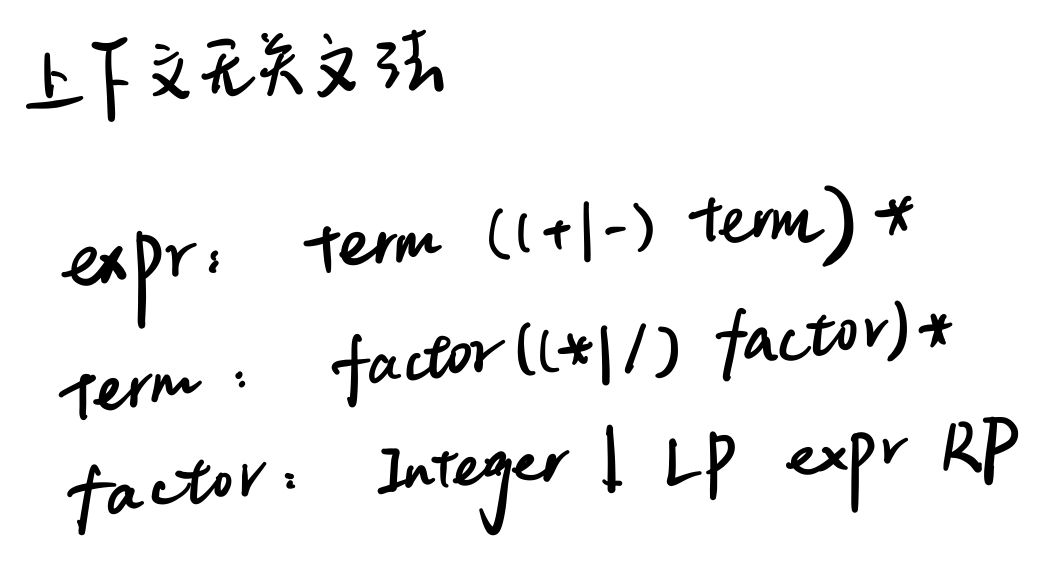 上下文无关文法
expr: term ((+|-) term)*
term: factor((*|/) factor)*
factor: Integer | LP expr RP